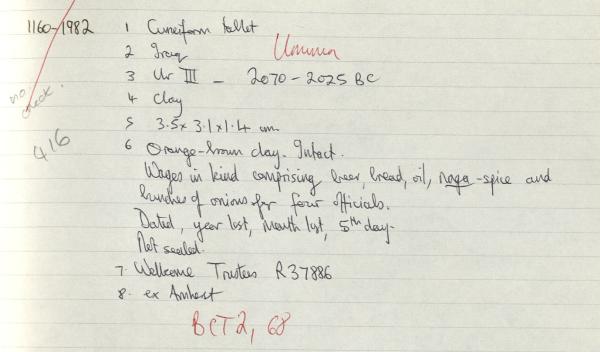 1160-1982 1 Cuneiform tablet
2 Iraq Umma
3 Ur III - 2070-2025 BC
no check.
4 Clay
5 3.5 x 3.1 x 1.4 cm.
416
6 Orange-brown clay. Intact.
Wages in kind comprising beer, bread, oil, naga-spice and
bunches of onions for four officials.
Dated, year lost, month lost, 5th day.
Not sealed.
7. Wellcome Trustees R37886
8. ex Amherst
BCT2, 68